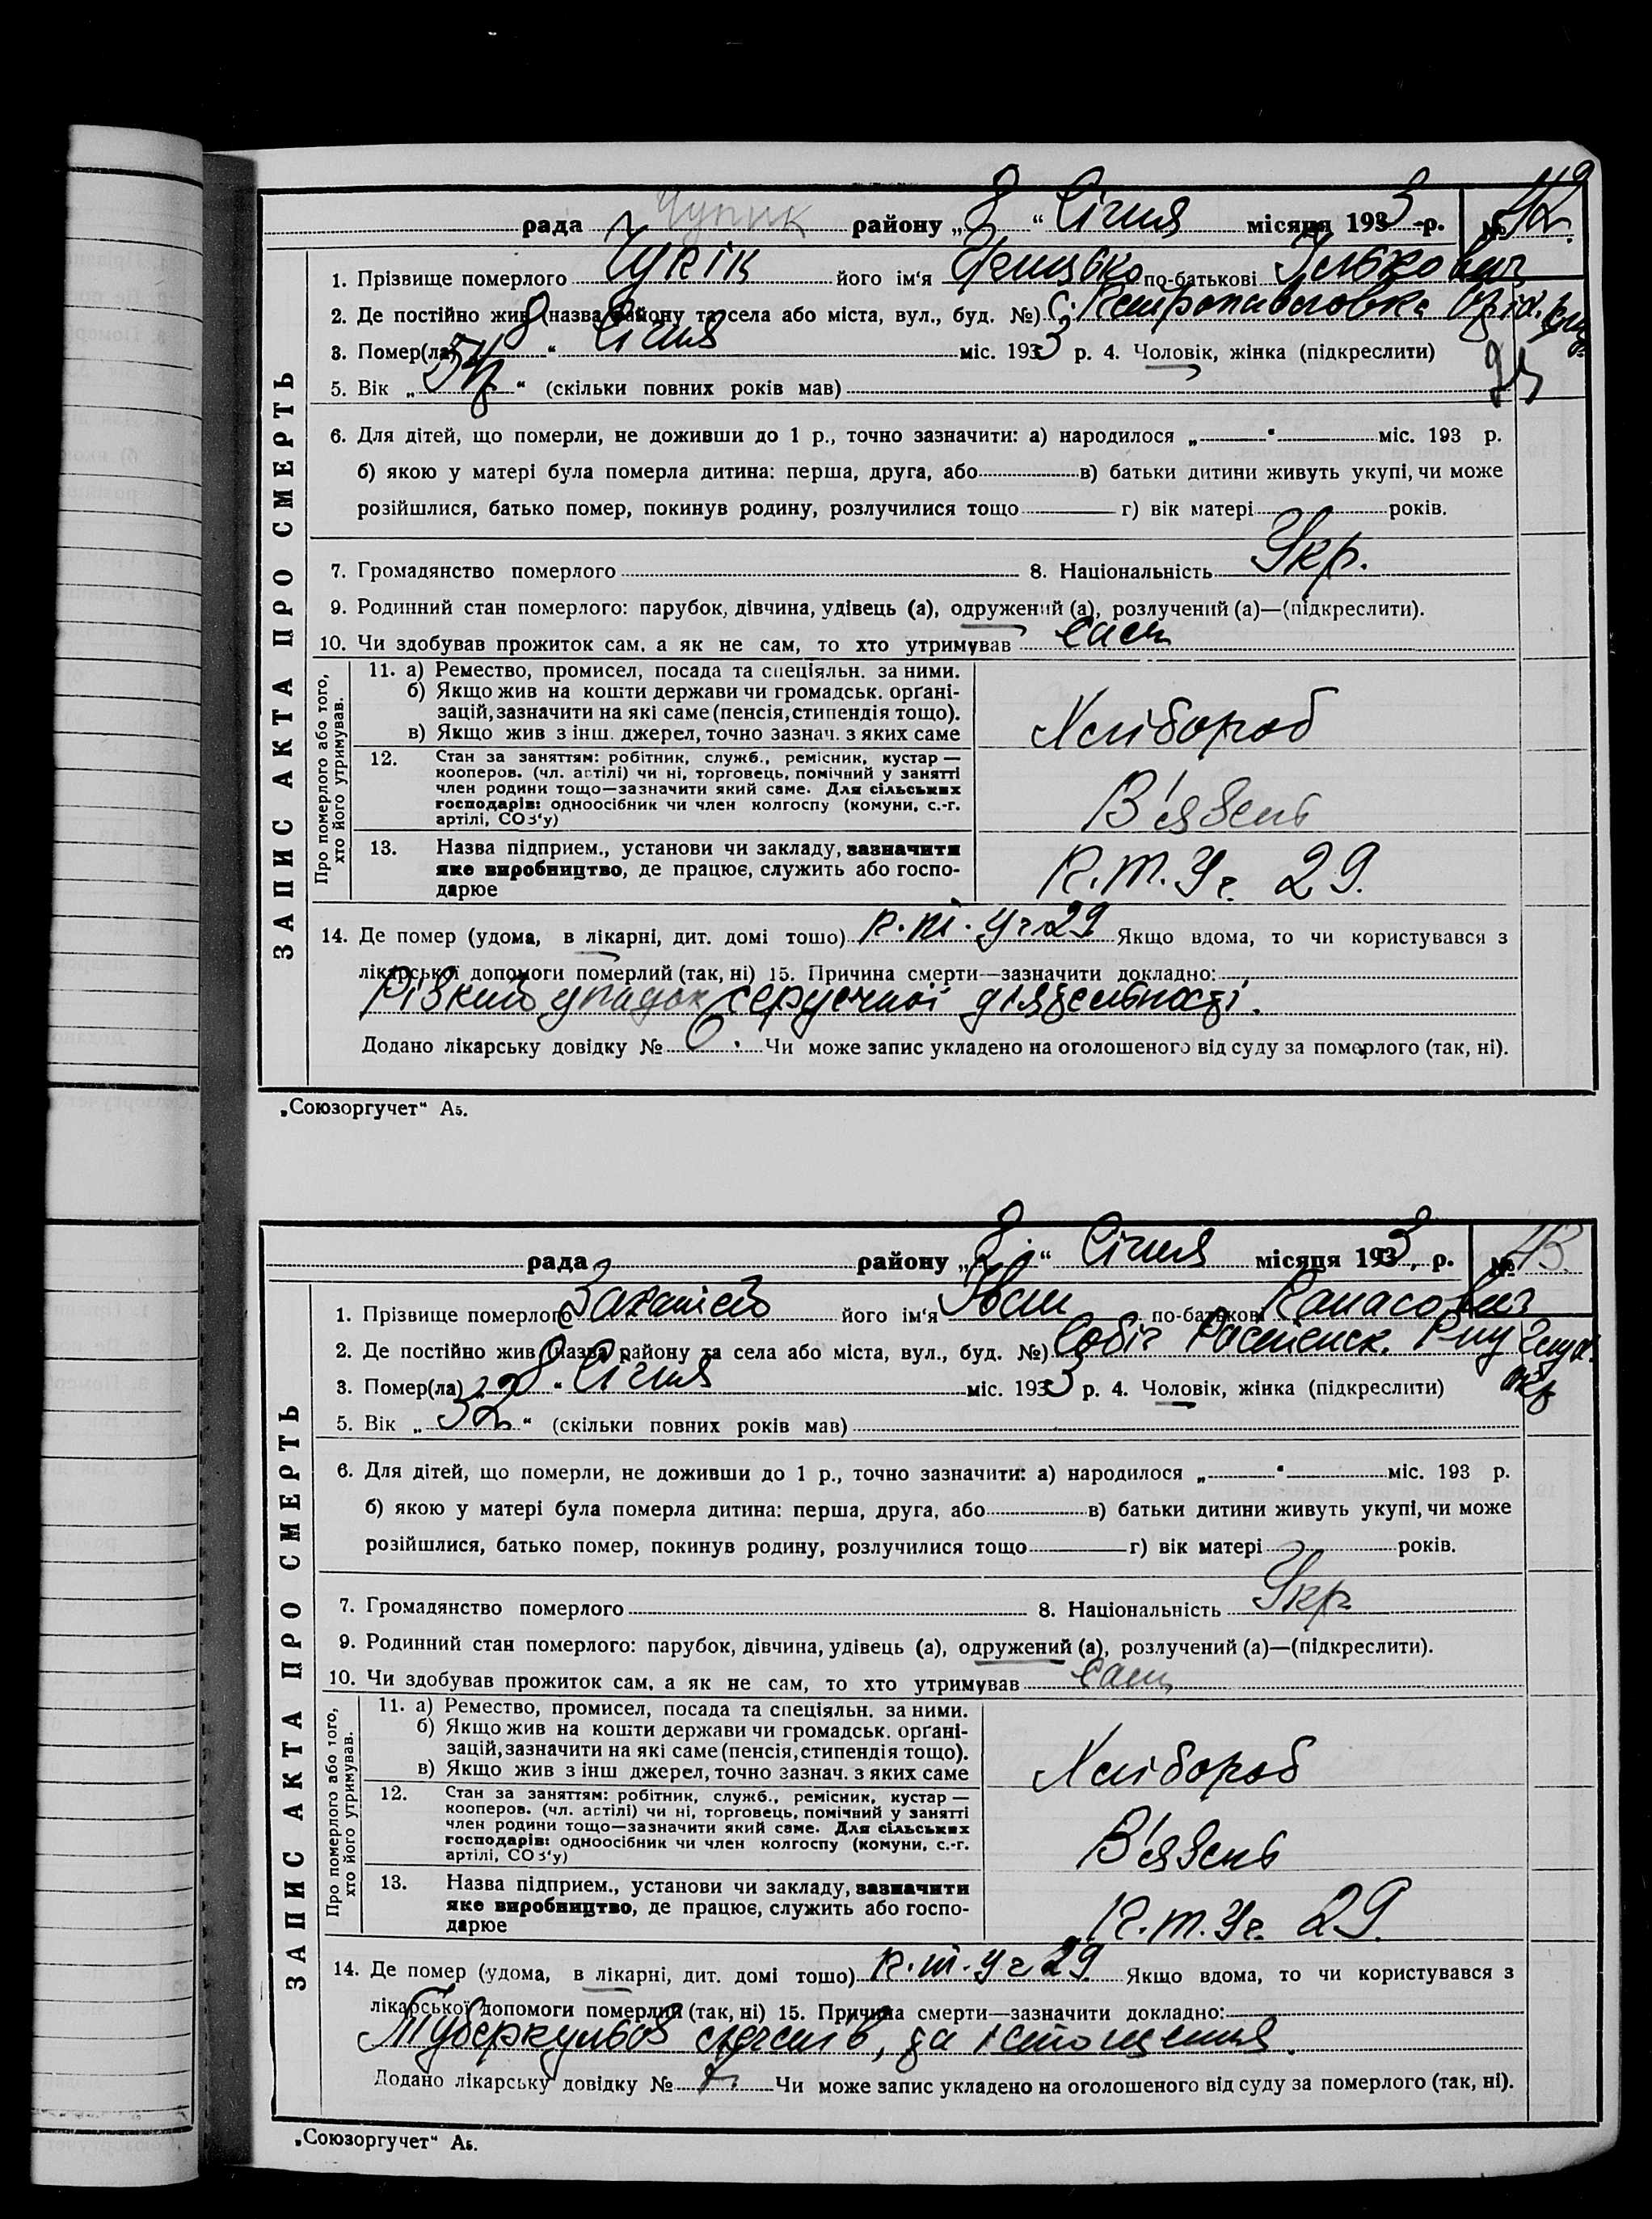 Чупик
рада району „8“ Січня місяця 1933 р. № 42.
ЗАПИС АКТА ПРО СМЕРТЬ
1. Прізвище померлого його ім‘я Грицько по-батькові
2. Де постійно жив (назва району та села або міста, вул., буд. №) с. Петропавловка
3. Помер(ла) „8“ Січня міс. 1933 р. 4. Чоловік, жінка (підкреслити)
5. Вік „ “ (скільки повних років мав)
6. Для дітей, що померли, не доживши до 1 р., точно зазначити: а) народилося „ “ міс. 193 р.
б) якою у матері була померла дитина: перша, друга, або в) батьки дитини живуть укупі, чи може
розійшлися, батько помер, покинув родину, розлучилися тощо г) вік матері років.
7. Громадянство померлого 8. Національність Укр.
9. Родинний стан померлого: парубок, дівчина, удівець (а), одружений (а), розлучений (а)—(підкреслити).
10. Чи здобував прожиток сам, а як не сам, то хто утримував сам
Про померлого або того, хто його утримував.
11. а) Ремество, промисел, посада та спеціяльн. за ними.
б) Якщо жив на кошти держави чи громадськ. орґані-
зацій, зазначити на які саме (пенсія, стипендія тощо).
в) Якщо жив з інш. джерел, точно зазнач. з яких саме
Хлібороб
12. Стан за заняттям: робітник, служб., ремісник, кустар —
кооперов. (чл. артілі) чи ні, торговець, помічний у занятті
член родини тощо—зазначити який саме. Для сільських
господарів: одноосібник чи член колгоспу (комуни, с.-г.
артілі, СОЗ‘у)
В'язень
13. Назва підприєм., установи чи закладу, зазначити
яке виробництво, де працює, служить або госпо-
дарює
К.т.Уч. 29.
14. Де помер (удома, в лікарні, дит. домі тошо) К.т.Уч 29 Якщо вдома, то чи користувався з
лікарської допомоги померлий (так, ні) 15. Причина смерти—зазначити докладно:
Різкий упадок сердечної діяцельності.
Додано лікарську довідку № 6. Чи може запис укладено на оголошеного від суду за померлого (так, ні).
„Союзоргучет“ А5.
рада району „8“ Січня місяця 1933, р. № 43.
ЗАПИС АКТА ПРО СМЕРТЬ
1. Прізвище померлого його ім‘я Іван по-батькові
2. Де постійно жив (назва району та села або міста, вул., буд. №)
3. Помер(ла) „8“ Січня міс. 1933 р. 4. Чоловік, жінка (підкреслити)
5. Вік „32“ (скільки повних років мав)
6. Для дітей, що померли, не доживши до 1 р., точно зазначити: а) народилося „ “ міс. 193 р.
б) якою у матері була померла дитина: перша, друга, або в) батьки дитини живуть укупі, чи може
розійшлися, батько помер, покинув родину, розлучилися тощо г) вік матері років.
7. Громадянство померлого 8. Національність Укр.
9. Родинний стан померлого: парубок, дівчина, удівець (а), одружений (а), розлучений (а)—(підкреслити).
10. Чи здобував прожиток сам, а як не сам, то хто утримував сам
Про померлого або того, хто його утримував.
11. а) Ремество, промисел, посада та спеціяльн. за ними.
б) Якщо жив на кошти держави чи громадськ. орґані-
зацій, зазначити на які саме (пенсія, стипендія тощо).
в) Якщо жив з інш джерел, точно зазнач. з яких саме
Хлібороб
12. Стан за заняттям: робітник, служб., ремісник, кустар —
кооперов. (чл. артілі) чи ні, торговець, помічний у занятті
член родини тощо—зазначити який саме. Для сільських
господарів: одноосібник чи член колгоспу (комуни, с.-г.
артілі, СОЗ‘у)
В'язень
13. Назва підприєм., установи чи закладу, зазначити
яке виробництво, де працює, служить або госпо-
дарює
К.т.Уч. 29.
14. Де помер (удома, в лікарні, дит. домі тошо) К.т.Уч 29. Якщо вдома, то чи користувався з
лікарської допомоги померлий (так, ні) 15. Причина смерти—зазначити докладно:
Туберкульоз легенів, да істощения.
Додано лікарську довідку № Чи може запис укладено на оголошеного від суду за померлого (так, ні).
„Союзоргучет“ А5.